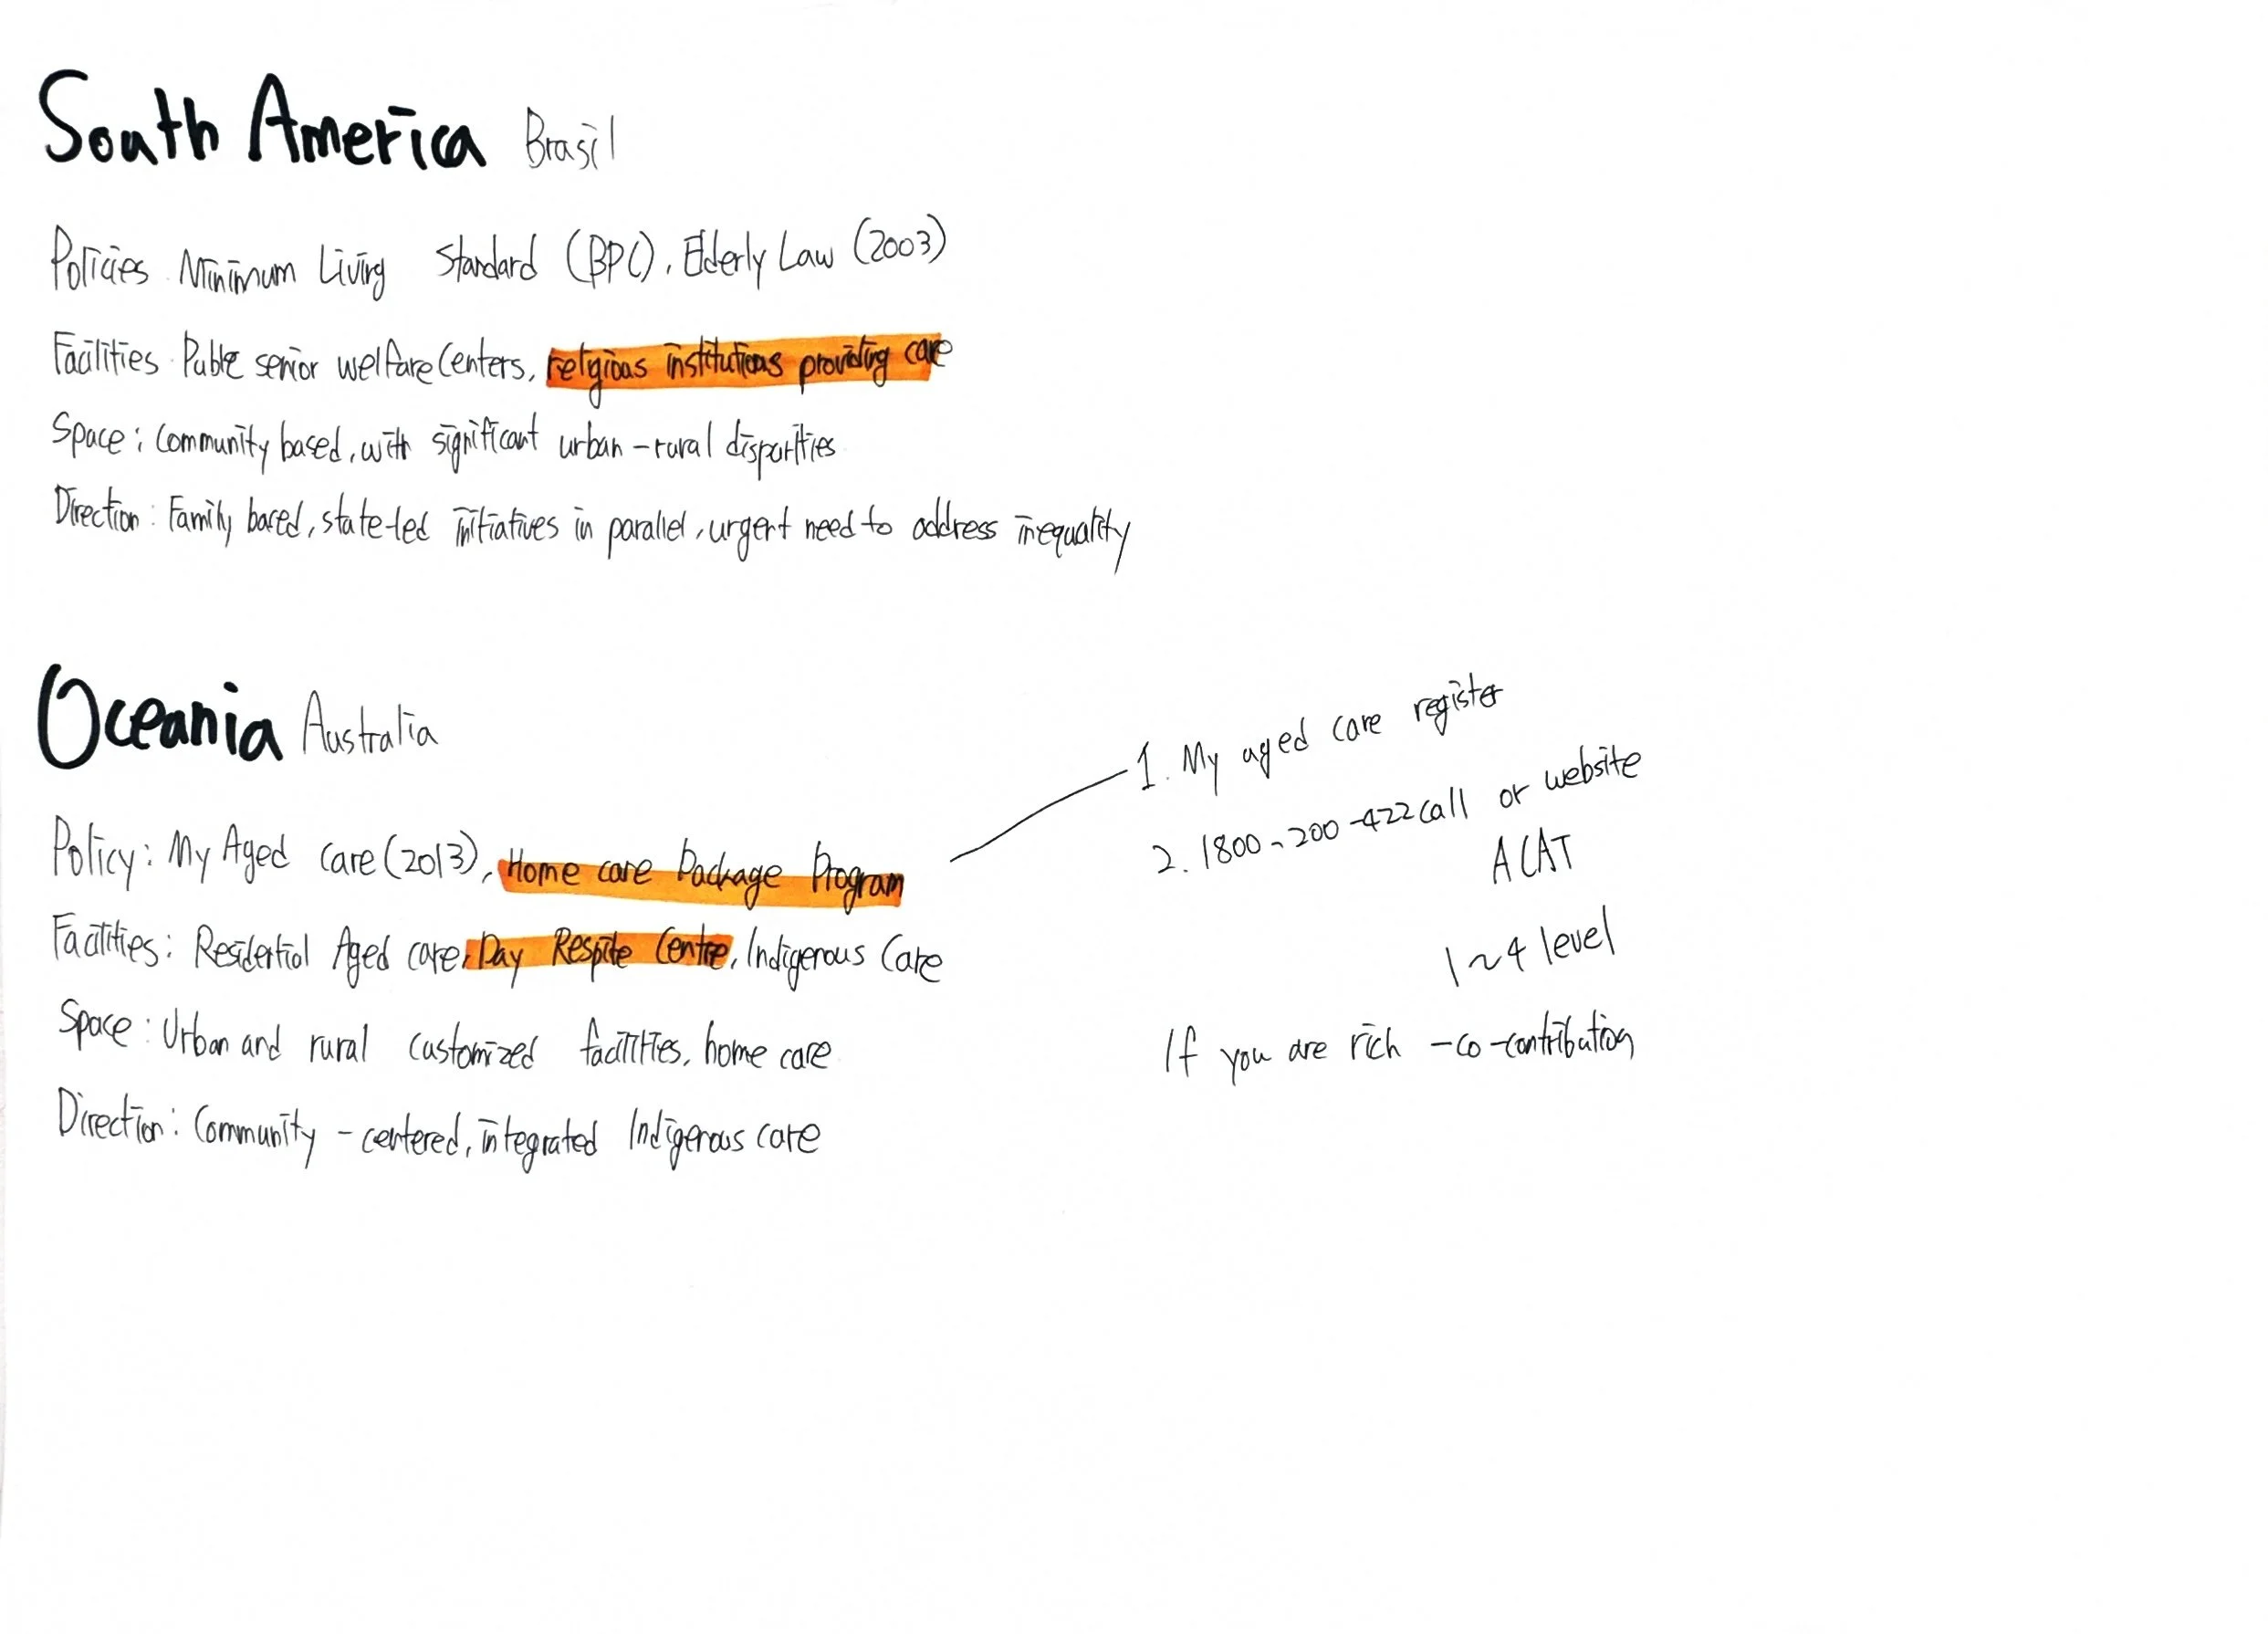 South America Brasil
Policies Minimum Living Standard (BPC), Elderly Law (2003)
Facilities Public senior welfare Centers, religious institutions providing care
Space: Community based, with significant urban-rural disparities
Direction: Family based, state-led initiatives in parallel, urgent need to address inequality
Oceania Australia
Policy: My Aged Care (2013), Home care Package Program
Facilities: Residential Aged care, Day Respite Centre, Indigenous Care
Space: Urban and rural customized facilities, home care
Direction: Community-centered, integrated Indigenous care
1. My aged care register
2. 1800-200-422 call or website
ACAT
1~4 level
If you are rich -co-contribution